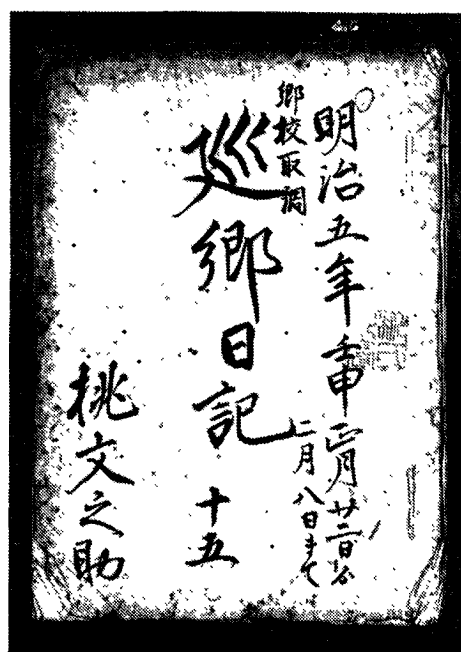 明治五年壬申正月廿二日ゟ
二月八日まて
郷校取調
廵郷日記 十五
桃文之助